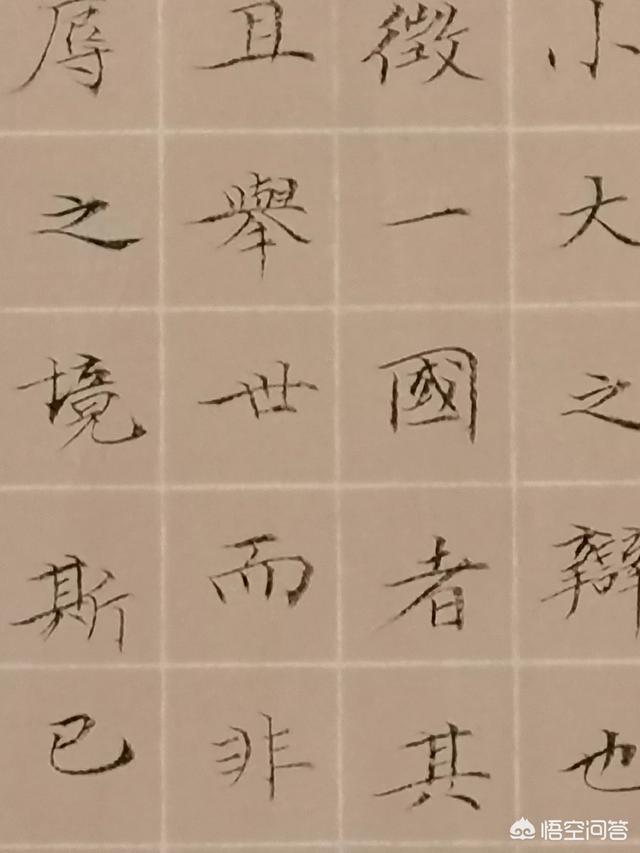 小大之辯也
徵一國者其
且舉世而非
辱之境斯已
悟空问答